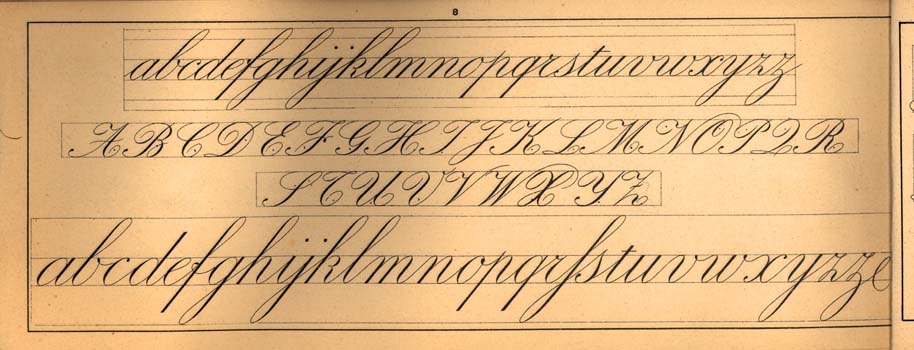 8
abcdefghijklmnopqrstuvwxyzz
ABCDEFGHIJKLMNOPQR
STUVVWXYZ
abcdefghijklmnopqrſstuvwxyzze